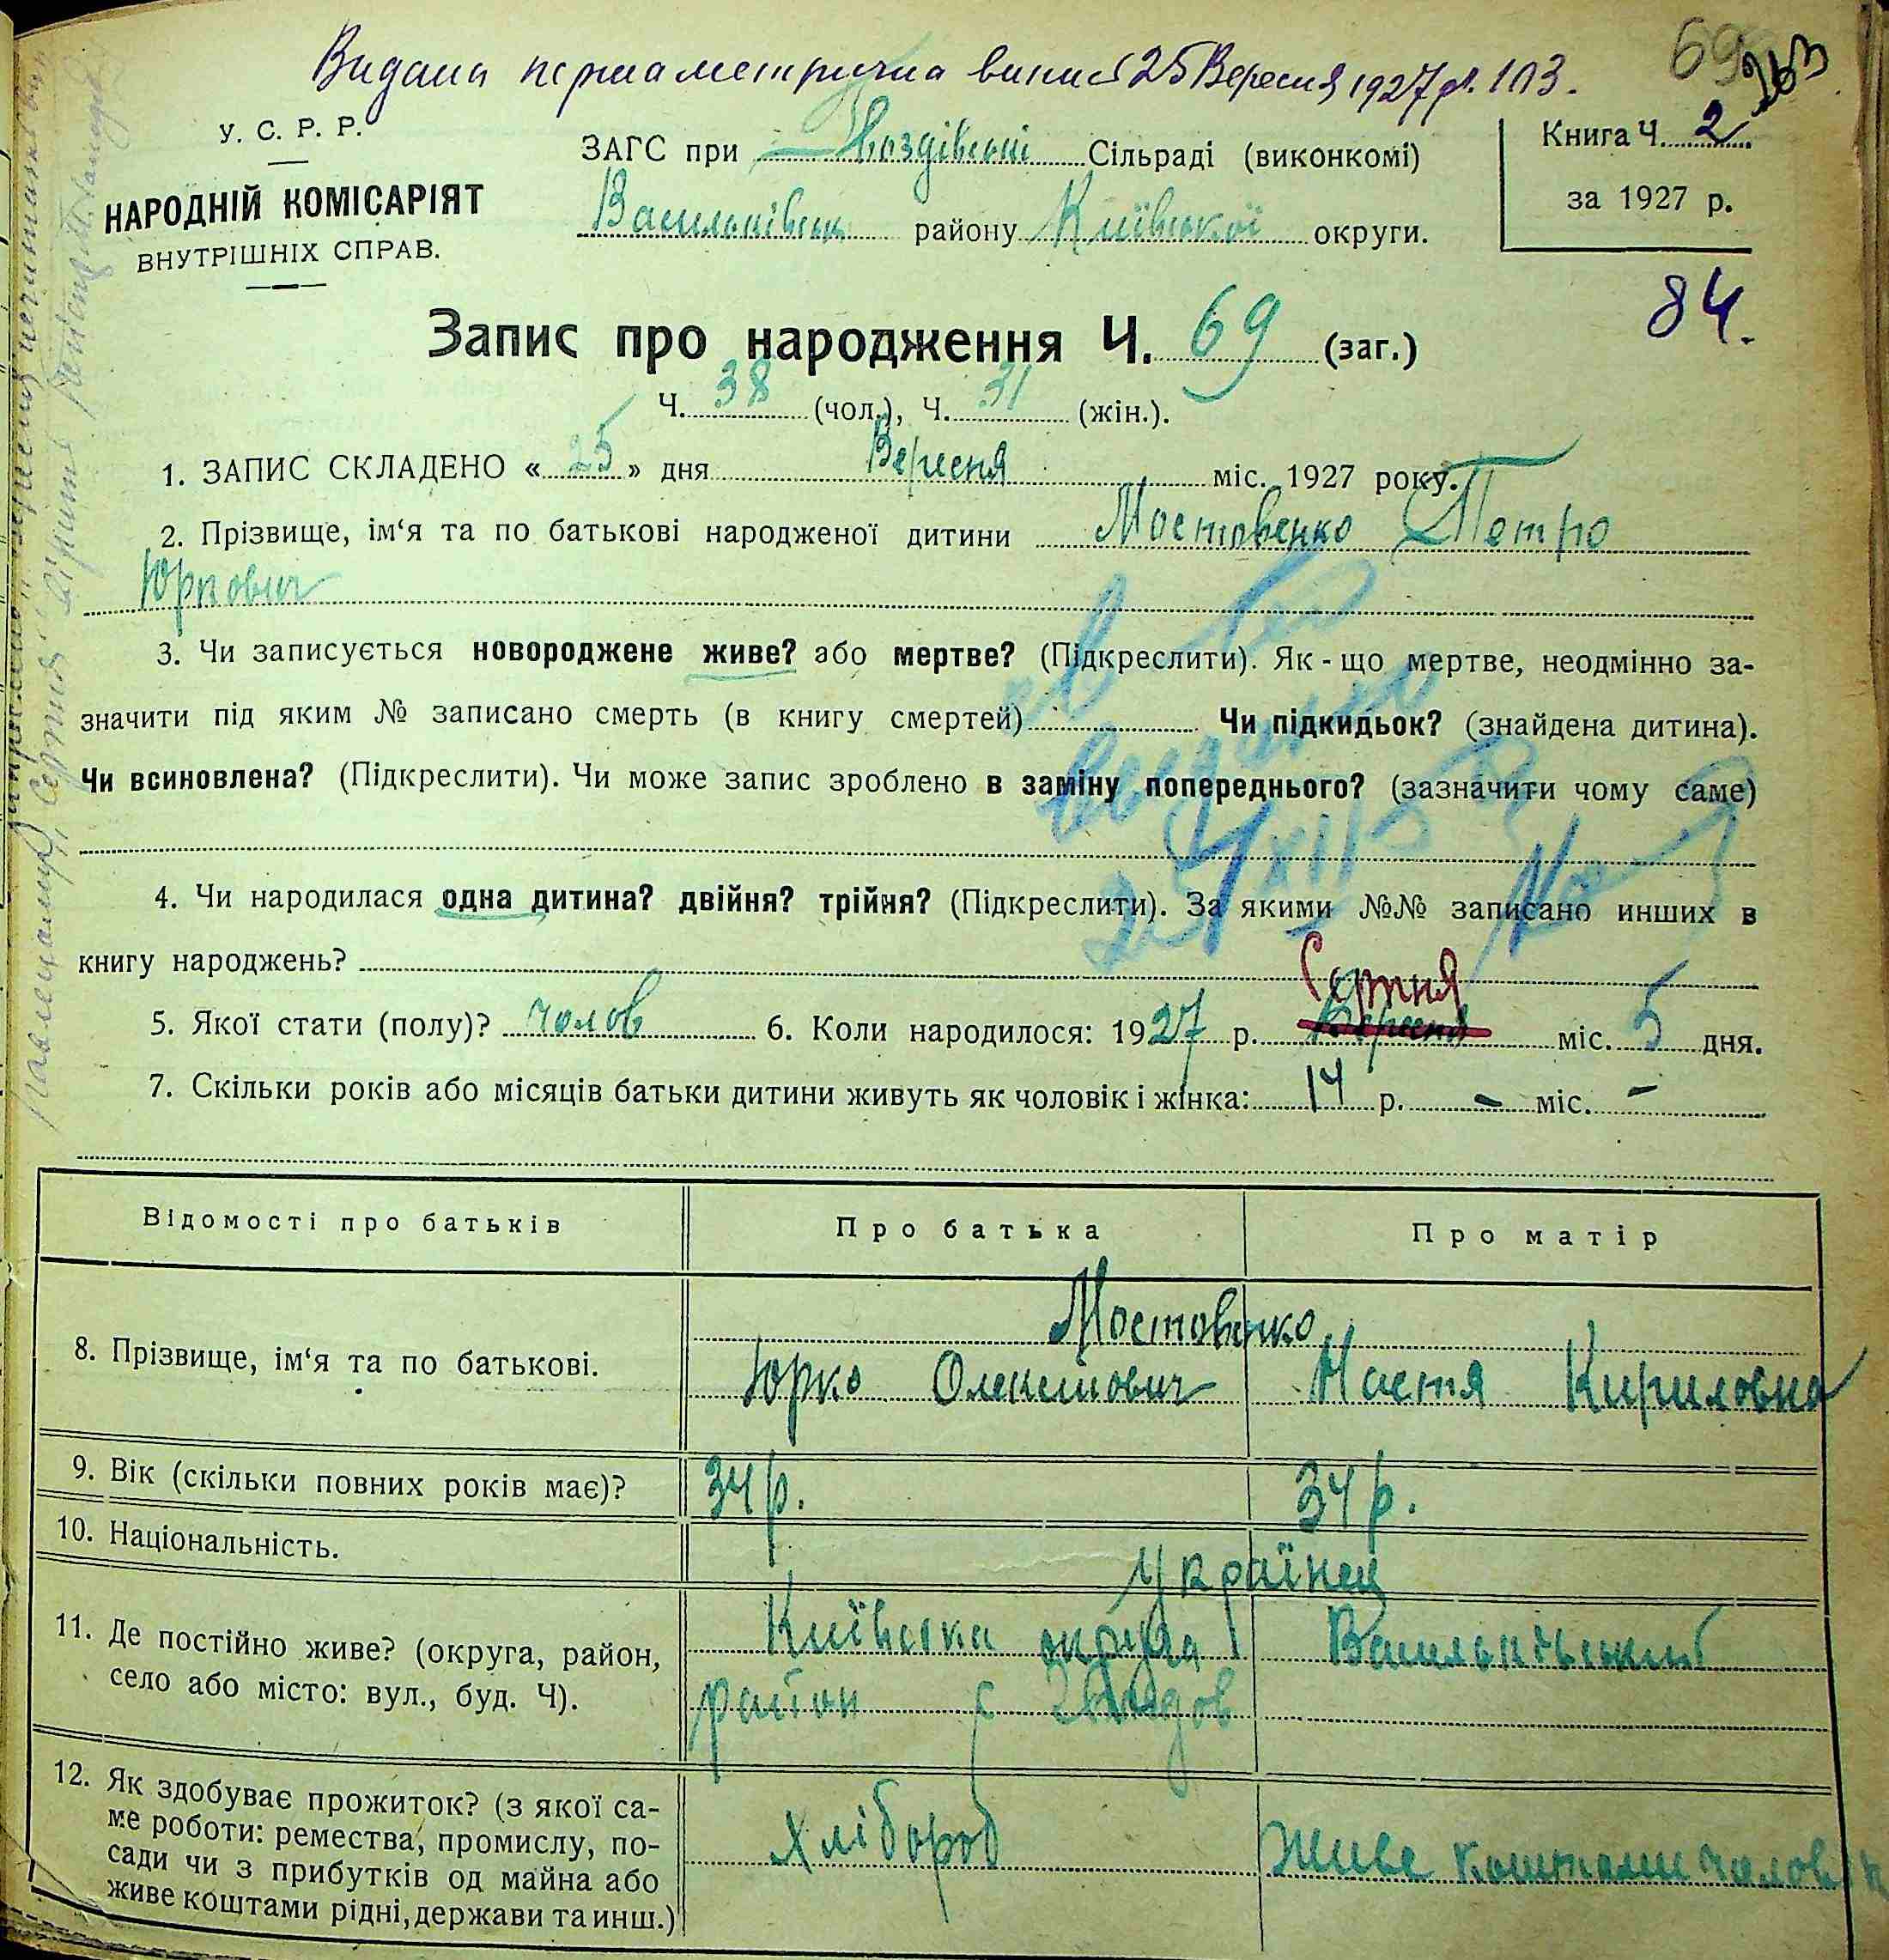 Видана перша метрична випис 25 Вересня 1927 р. 113.
69
263
У. С. Р. Р.
НАРОДНІЙ КОМІСАРІЯТ
ВНУТРІШНІХ СПРАВ.
ЗАГС при Гвоздівські Сільраді (виконкомі)
Васильківськ району Київської округи.
Книга Ч. 2
за 1927 р.
84.
Запис про народження Ч. 69 (заг.)
Ч. 38 (чол.), Ч. 31 (жін.).
1. ЗАПИС СКЛАДЕНО «25» дня Вересня міс. 1927 року.
2. Прізвище, ім‘я та по батькові народженої дитини Мостовенко Петро
Юркович
3. Чи записується новороджене живе? або мертве? (Підкреслити). Як-що мертве, неодмінно за-
значити під яким № записано смерть (в книгу смертей) Чи підкидьок? (знайдена дитина).
Чи всиновлена? (Підкреслити). Чи може запис зроблено в заміну попереднього? (зазначити чому саме)
4. Чи народилася одна дитина? двійня? трійня? (Підкреслити). За якими №№ записано инших в
книгу народжень?
Серпня
5. Якої стати (полу)? чолов 6. Коли народилося: 1927 р. Вересня міс. 5 дня.
7. Скільки років або місяців батьки дитини живуть як чоловік і жінка: 14 р. - міс. -
Відомості про батьків Про батька Про матір
Мостовенко
8. Прізвище, ім‘я та по батькові. Юрко Олексиович Настя Кириловна
9. Вік (скільки повних років має)? 34 р. 34 р.
10. Національність. Українец
11. Де постійно живе? (округа, район, Київська округа Васильківський
село або місто: вул., буд. Ч). район с
12. Як здобуває прожиток? (з якої са-
ме роботи: ремества, промислу, по- хлібороб Живе коштами чоловік
сади чи з прибутків од майна або
живе коштами рідні, держави та инш.)